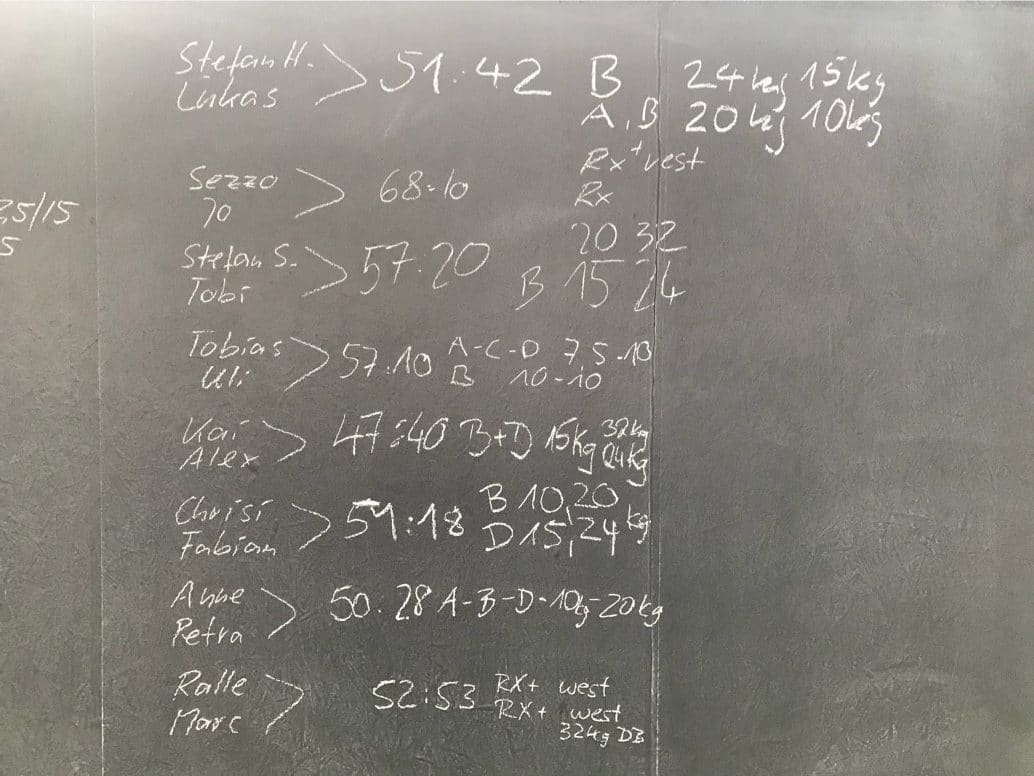 Stefan H. > 51:42 B 24kg 15kg
Lukas A, B 20kg 10kg
Rx + vest
Sezzo > 68:10 Rx
Jo
7,5/15
5
20 32
Stefan S. > 57:20 B 15 24
Tobi
Tobias > 57:10 A-C-D 7,5-10
Uli B 10-10
Kai > 47:40 B+D 15kg 32kg
Alex 24kg
Chrisi > 51:18 B 10,20
Fabian D 15,24 kg
Anne > 50:28 A-B-D-10kg-20kg
Petra
Ralle > 52:53 RX+ west
Marc RX+ west
32kg DB